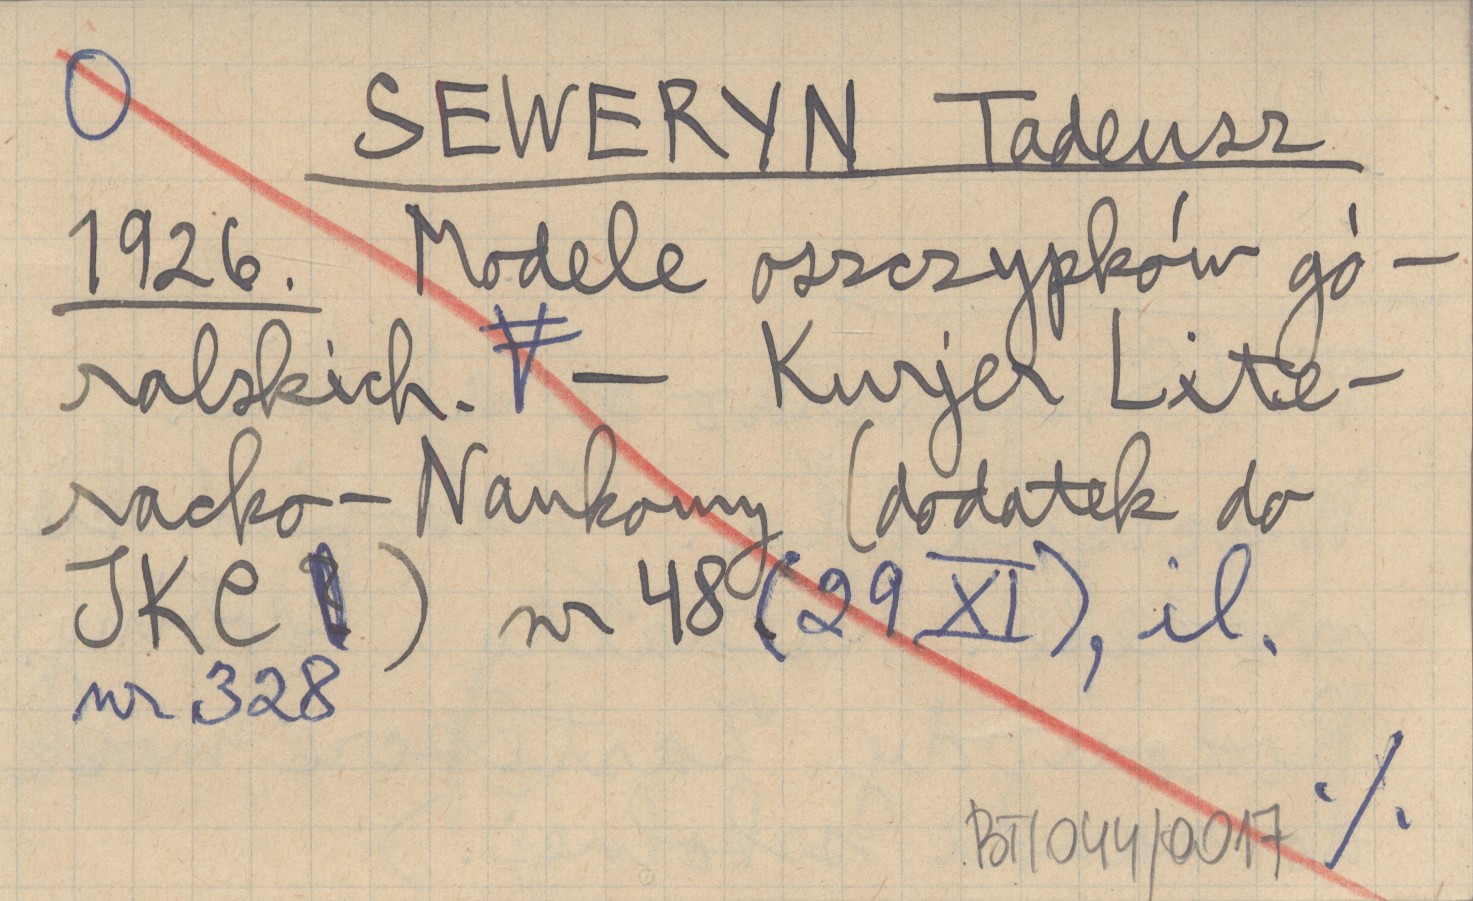 O
SEWERYN Tadeusz
1926. Modele oszczypków gó-
ralskich. — Kurjer Lite-
racko-Naukowy (dodatek do
JKC ) nr 48 (29 XI), il.
nr 328
./.
BT/044/0017